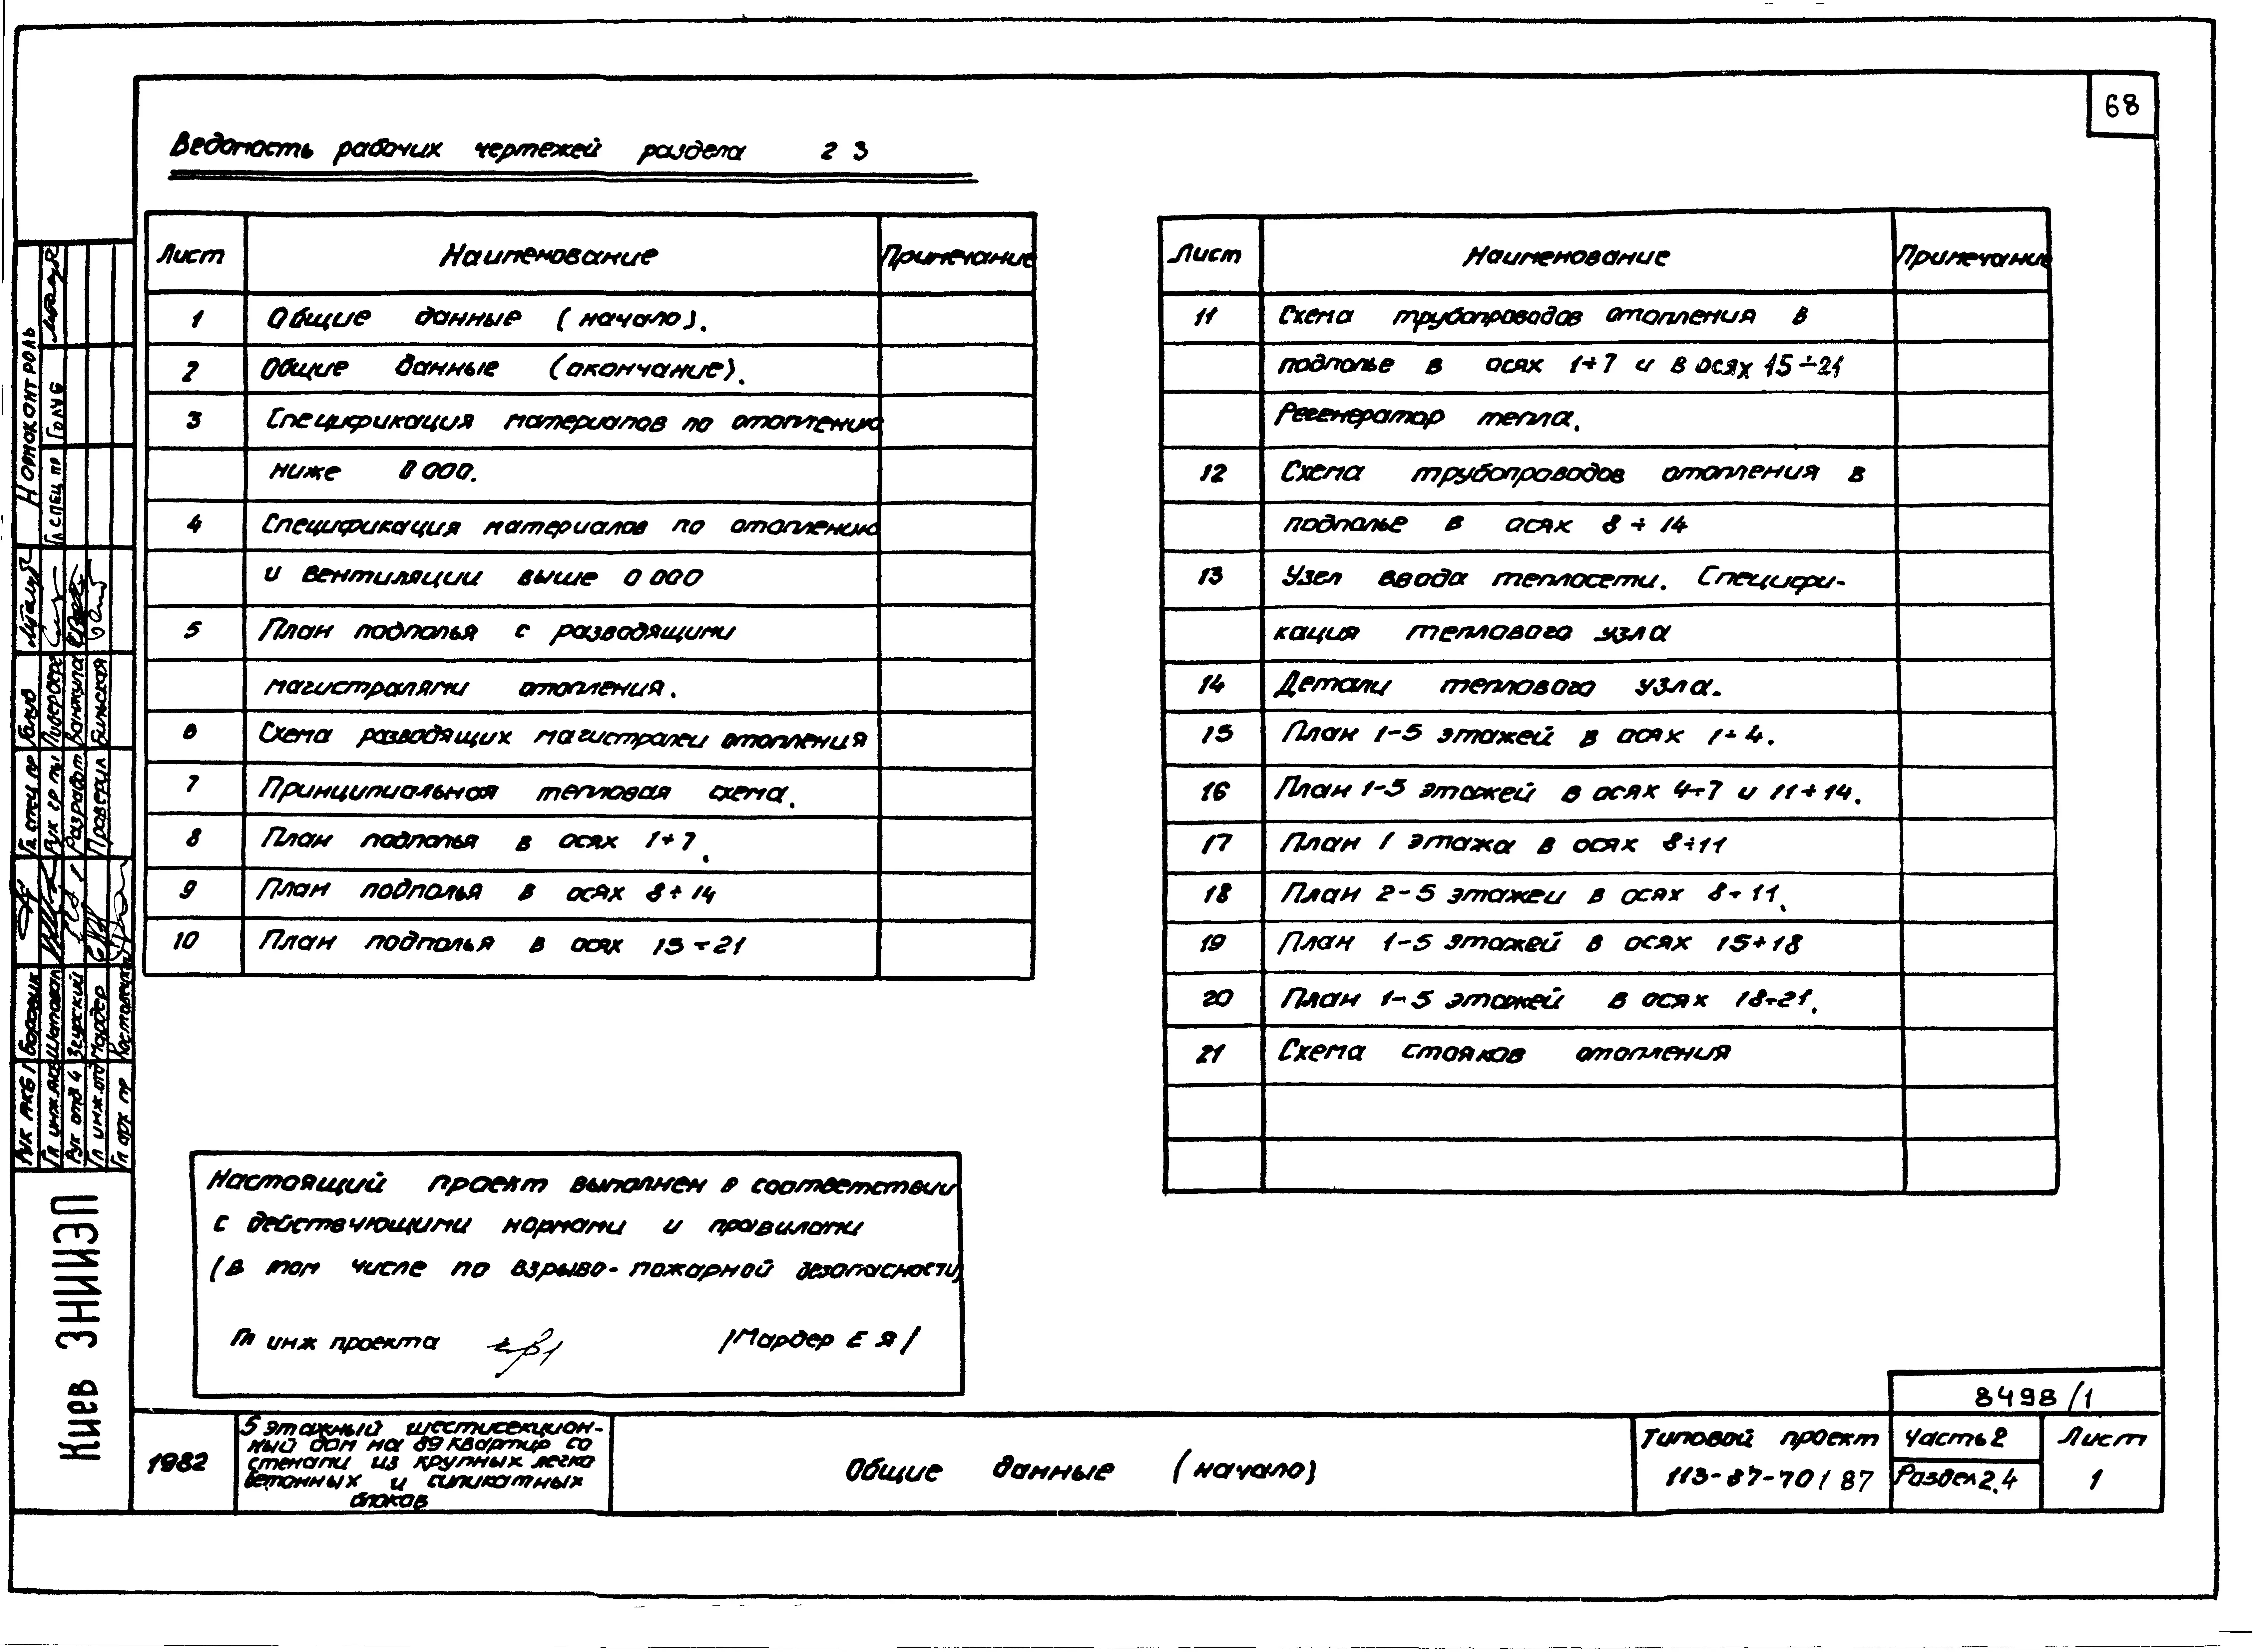 68
Ведомость рабочих чертежей раздела 2 3
Лист Наименование Примечание
1 Общие данные (начало).
2 Общие данные (окончание).
3 Спецификация материалов по отоплению
ниже 0 000.
4 Спецификация материалов по отоплению
и вентиляции выше 0 000
5 План подполья с разводящими
магистралями отопления.
6 Схема разводящих магистралей отопления
7 Принципиальная тепловая схема.
8 План подполья в осях 1÷7.
9 План подполья в осях 8÷14
10 План подполья в осях 15÷21
Лист Наименование Примечание
11 Схема трубопроводов отопления в
подполье в осях 1÷7 и в осях 15÷21
Регенератор тепла.
12 Схема трубопроводов отопления в
подполье в осях 8÷14
13 Узел ввода теплосети. Специфи-
кация теплового узла
14 Детали теплового узла.
15 План 1-5 этажей в осях 1÷4.
16 План 1-5 этажей в осях 4÷7 и 11÷14.
17 План 1 этажа в осях 8÷11
18 План 2-5 этажей в осях 8÷11.
19 План 1-5 этажей в осях 15÷18
20 План 1-5 этажей в осях 18÷21.
21 Схема стояков отопления
Настоящий проект выполнен в соответствии
с действующими нормами и правилами
(в том числе по взрыво-пожарной безопасности)
Гл инж проекта /Мардер Е Я/
Нормоконтроль
Гл спец пр Голуб
Гл спец пр Голуб
Рук гр ты
Разработ Ванжула
Проверил Бильская
Рук АКБ1 Боровик
Гл инж.АКБ Шаповал
Рук отд 4 Згурский
Гл инж.отд Мардер
Гл арх пр
Киев ЗНИИЭП
8498/1
1982
5 этажный шестисекцион-
ный дом на 89 квартир со
стенами из крупных легко
бетонных и силикатных
блоков
Общие данные (начало)
Типовой проект
113-87-70/87
Часть 2
Раздел 2.4
Лист
1